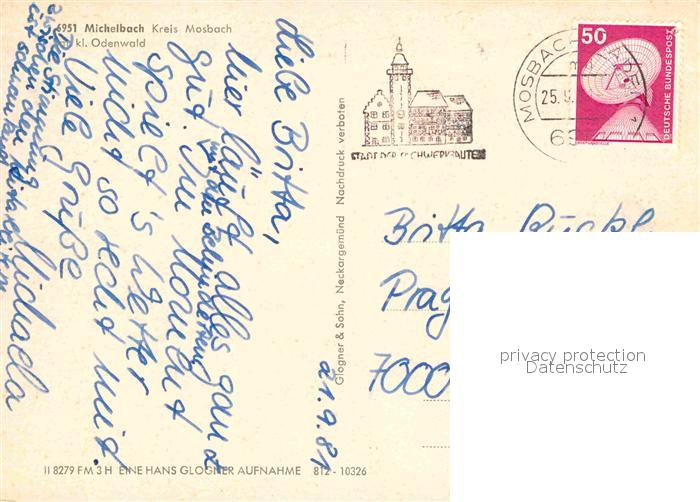 6951 Michelbach Kreis Mosbach
kl. Odenwald
Liebe Britta,
hier läuft alles ganz
gut. Im Moment
spielt 's Wetter
nicht so recht mit.
Viele Grüße
Michaela
die Stimmung
ist
21.9.81
Glogner & Sohn, Neckargemünd Nachdruck verboten
II 8279 FM 3 H EINE HANS GLOGNER AUFNAHME 812 - 10326
STADT DER FACHWERKBAUTEN
MOSBACH
25.9.
695
50
DEUTSCHE BUNDESPOST
Britta
Prag
7000
privacy protection
Datenschutz